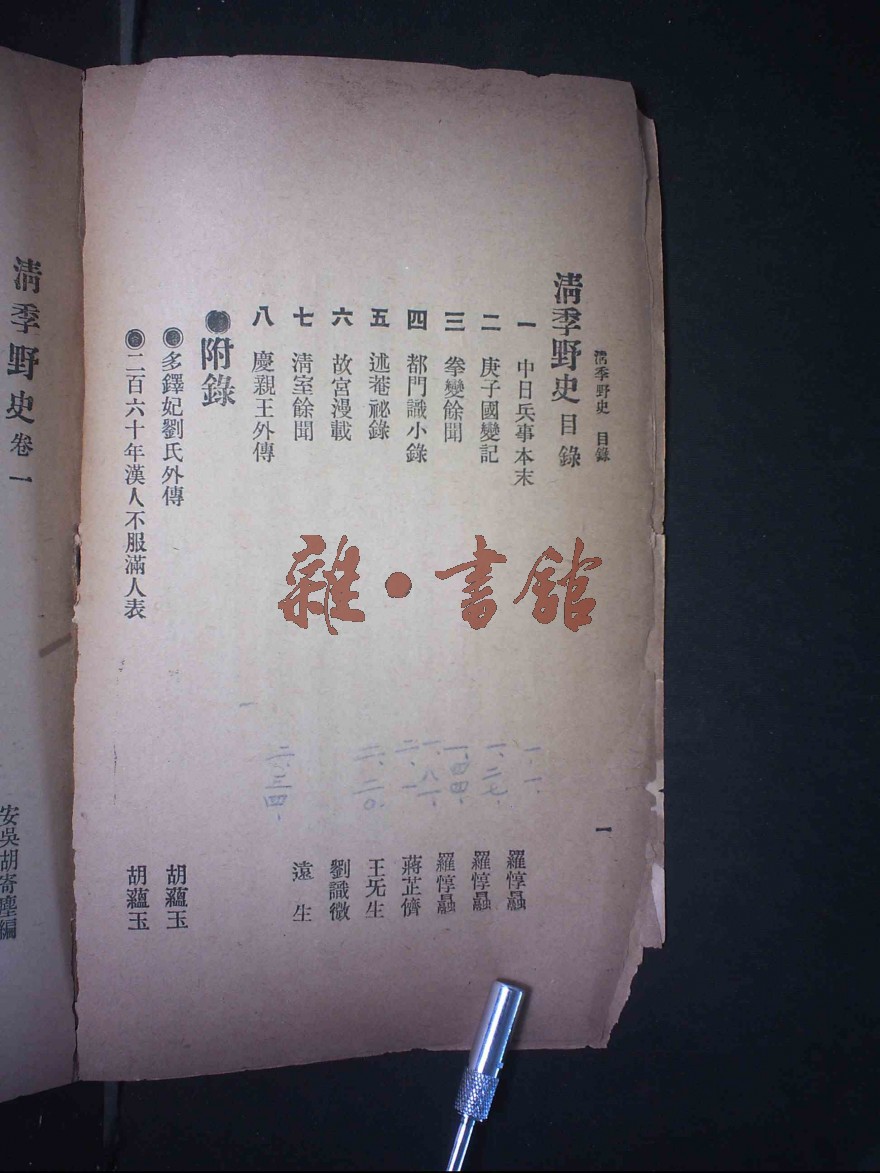 清季野史 目錄
清季野史目錄
一 中日兵事本末 羅惇曧
二 庚子國變記 羅惇曧
三 拳變餘聞 羅惇曧
四 都門識小錄 蔣芷儕
五 述菴祕錄 王旡生
六 故宮漫載 劉識微
七 清室餘聞 遠生
八 慶親王外傳
附錄
多鐸妃劉氏外傳 胡蘊玉
二百六十年漢人不服滿人表 胡蘊玉
一
一、一、
一、二七、
一、四四、
一、八一、
二、一、
二、二〇、
二、三四、
雜·書館
清季野史卷一
安吳胡寄塵編